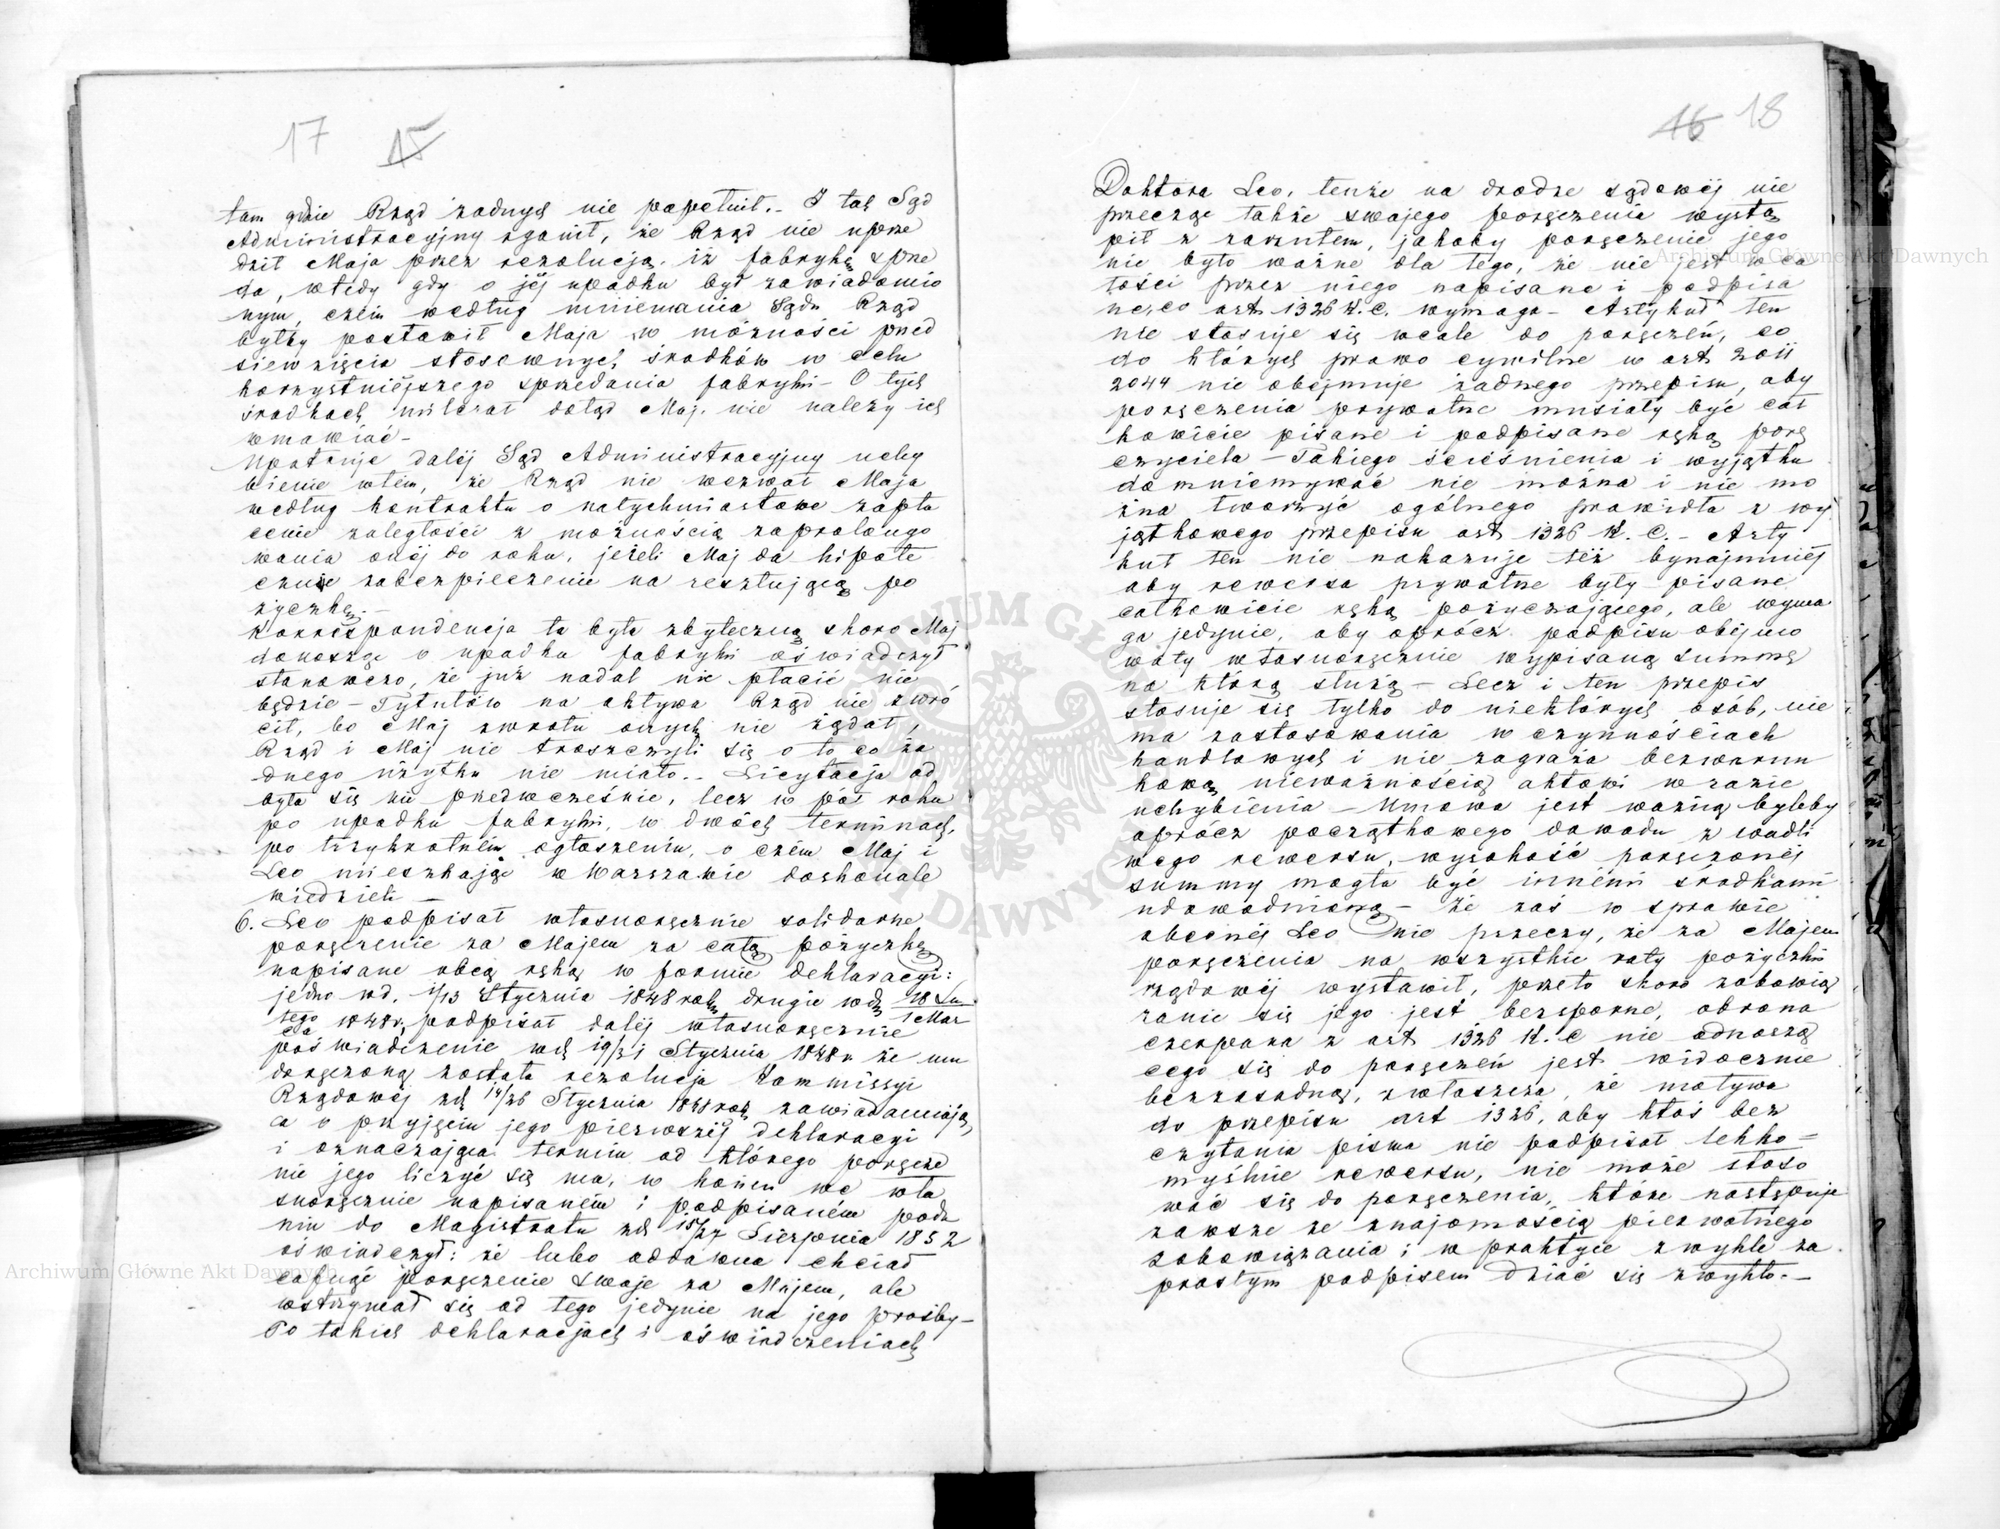 17 15
tam gdzie Rząd żadnych nie popełnił. – I tak Sąd
Administracyjny zganił, że Rząd nie uprze
dził Maja przez rezolucją, iż fabrykę sprze
da, wtedy gdy o jéj upadku był zawiadomio
nym, czém według mniemania Sądu Rząd
byłby postawił Maja w możności przed
siewzięcia stosownych środków w celu
korzystniejszego sprzedania fabryki – O tych
środkach milczał dotąd Maj, nie należy ich
wmawiać –
Upatruje daléj Sąd Administracyjny uchy
bienie w tém, że Rząd nie wezwał Maja
według kontraktu o natychmiastowe zapła
cenie zaległości z możnością zaprolongo
wania onéj do roku, jeżeli Maj da hipote
czne zabezpieczenie na resztującą po
życzkę. –
Korrespondencja ta była zbyteczną skoro Maj
donosząc o upadku fabryki oświadczył
stanowczo, że już nadal nie płacić nie
będzie – Tytułów na aktywa Rząd nie zwró
cił, bo Maj zwrotu onych nie żądał,
Rząd i Maj nie troszczyli się o to co ża
dnego użytku nie miało. – Licytacja od
była się nie przedwcześnie, lecz w pół roku
po upadku fabryki, w dwóch terminach,
po trzykrotném ogłoszeniu, o czém Maj i
Leo mieszkając w Warszawie doskonale
wiedzieli –
6. Leo podpisał własnoręcznie solidarne
poręczenie za Majem za całą pożyczkę
napisane obcą ręką w formie deklaracyi:
jedno w d. 1/13 Stycznia 1848 roku drugie w dn 18 Lu
tego 1848 r, podpisał daléj własnoręcznie 1 Mar
ca
poświadczenie w d. 19/31 Stycznia 1848 r. że mu
doręczoną została rezolucja Kommissyi
Rządowéj z d. 14/26 Stycznia 1848 rok, zawiadamiają
ca o przyjęciu jego pierwszéj deklaracyi
i oznaczająca termin od którego poręcze
nie jego liczyć się ma, w końcu we wła
snoręcznie napisaném i podpisaném poda
niu do Magistratu z d. 15/27 Sierpnia 1852
oświadczył: że lubo oddawna chciał
cofnąć poręczenie swoje za Majem, ale
wstrzymał się od tego jedynie na jego prośby –
Po takich deklaracjach i oświadczeniach
16 18
Doktora Leo, tenże na drodze sądowéj nie
przecząc także swojego poręczenia wystą
pił z zarzutem, jakoby poręczenie jego
nie było ważne dla tego, że nie jest w ca
łości przez niego napisane i podpisa
ne, co art. 1326 K. C. wymaga – Artykuł ten
nie stosuje się wcale do poręczeń, co
do których prawo cywilne w art 2011
2044 nie obéjmuje żadnego przepisu, aby
poręczenia prywatne musiały być cał
kowicie pisane i podpisane ręką porę
czyciela – Takiego ścieśnienia i wyjątku
domniemywać nie można i nie mo
żna tworzyć ogólnego prawidła z wy
jątkowego przepisu art 1326 K. C. – Arty
kuł ten nie nakazuje téż bynajmniéj
aby rewersa prywatne były pisane
całkowicie ręką pożyczającego, ale wyma
ga jedynie, aby oprócz podpisu obéjmo
wały własnoręcznie wypisaną summę
na którą służą – Lecz i ten przepis
stosuje się tylko do niektórych osób, nie
ma zastosowania w czynnościach
handlowych i nie zagraża bezwarun
kową nieważnością aktowi w razie
uchybienia – Umowa jest ważną byleby
oprócz początkowego dowodu z wadli
wego rewersu, wysokość poręczonéj
summy mogła być innémi środkami
udowodnioną – że zaś w sprawie
obecnéj Leo nie przeczy, że za Majem
poręczenia na wszystkie raty pożyczki
rządowéj wystawił, przeto skoro zobowią
zanie się jego jest bezsporne, obrona
czerpana z art 1326 K. C nie odnoszą
cego się do poręczeń jest widocznie
bezzasadną, zwłaszcza, że motywa
do przepisu art 1326, aby ktoś bez
czytania pisma nie podpisał lekko=
myślnie rewersu, nie może stoso
wać się do poręczenia, które następuje
zawsze ze znajomością pierwotnego
zobowiązania i w praktyce zwykle za
prostym podpisem dziać się zwykło. –
Archiwum Główne Akt Dawnych
Archiwum Główne Akt Dawnych